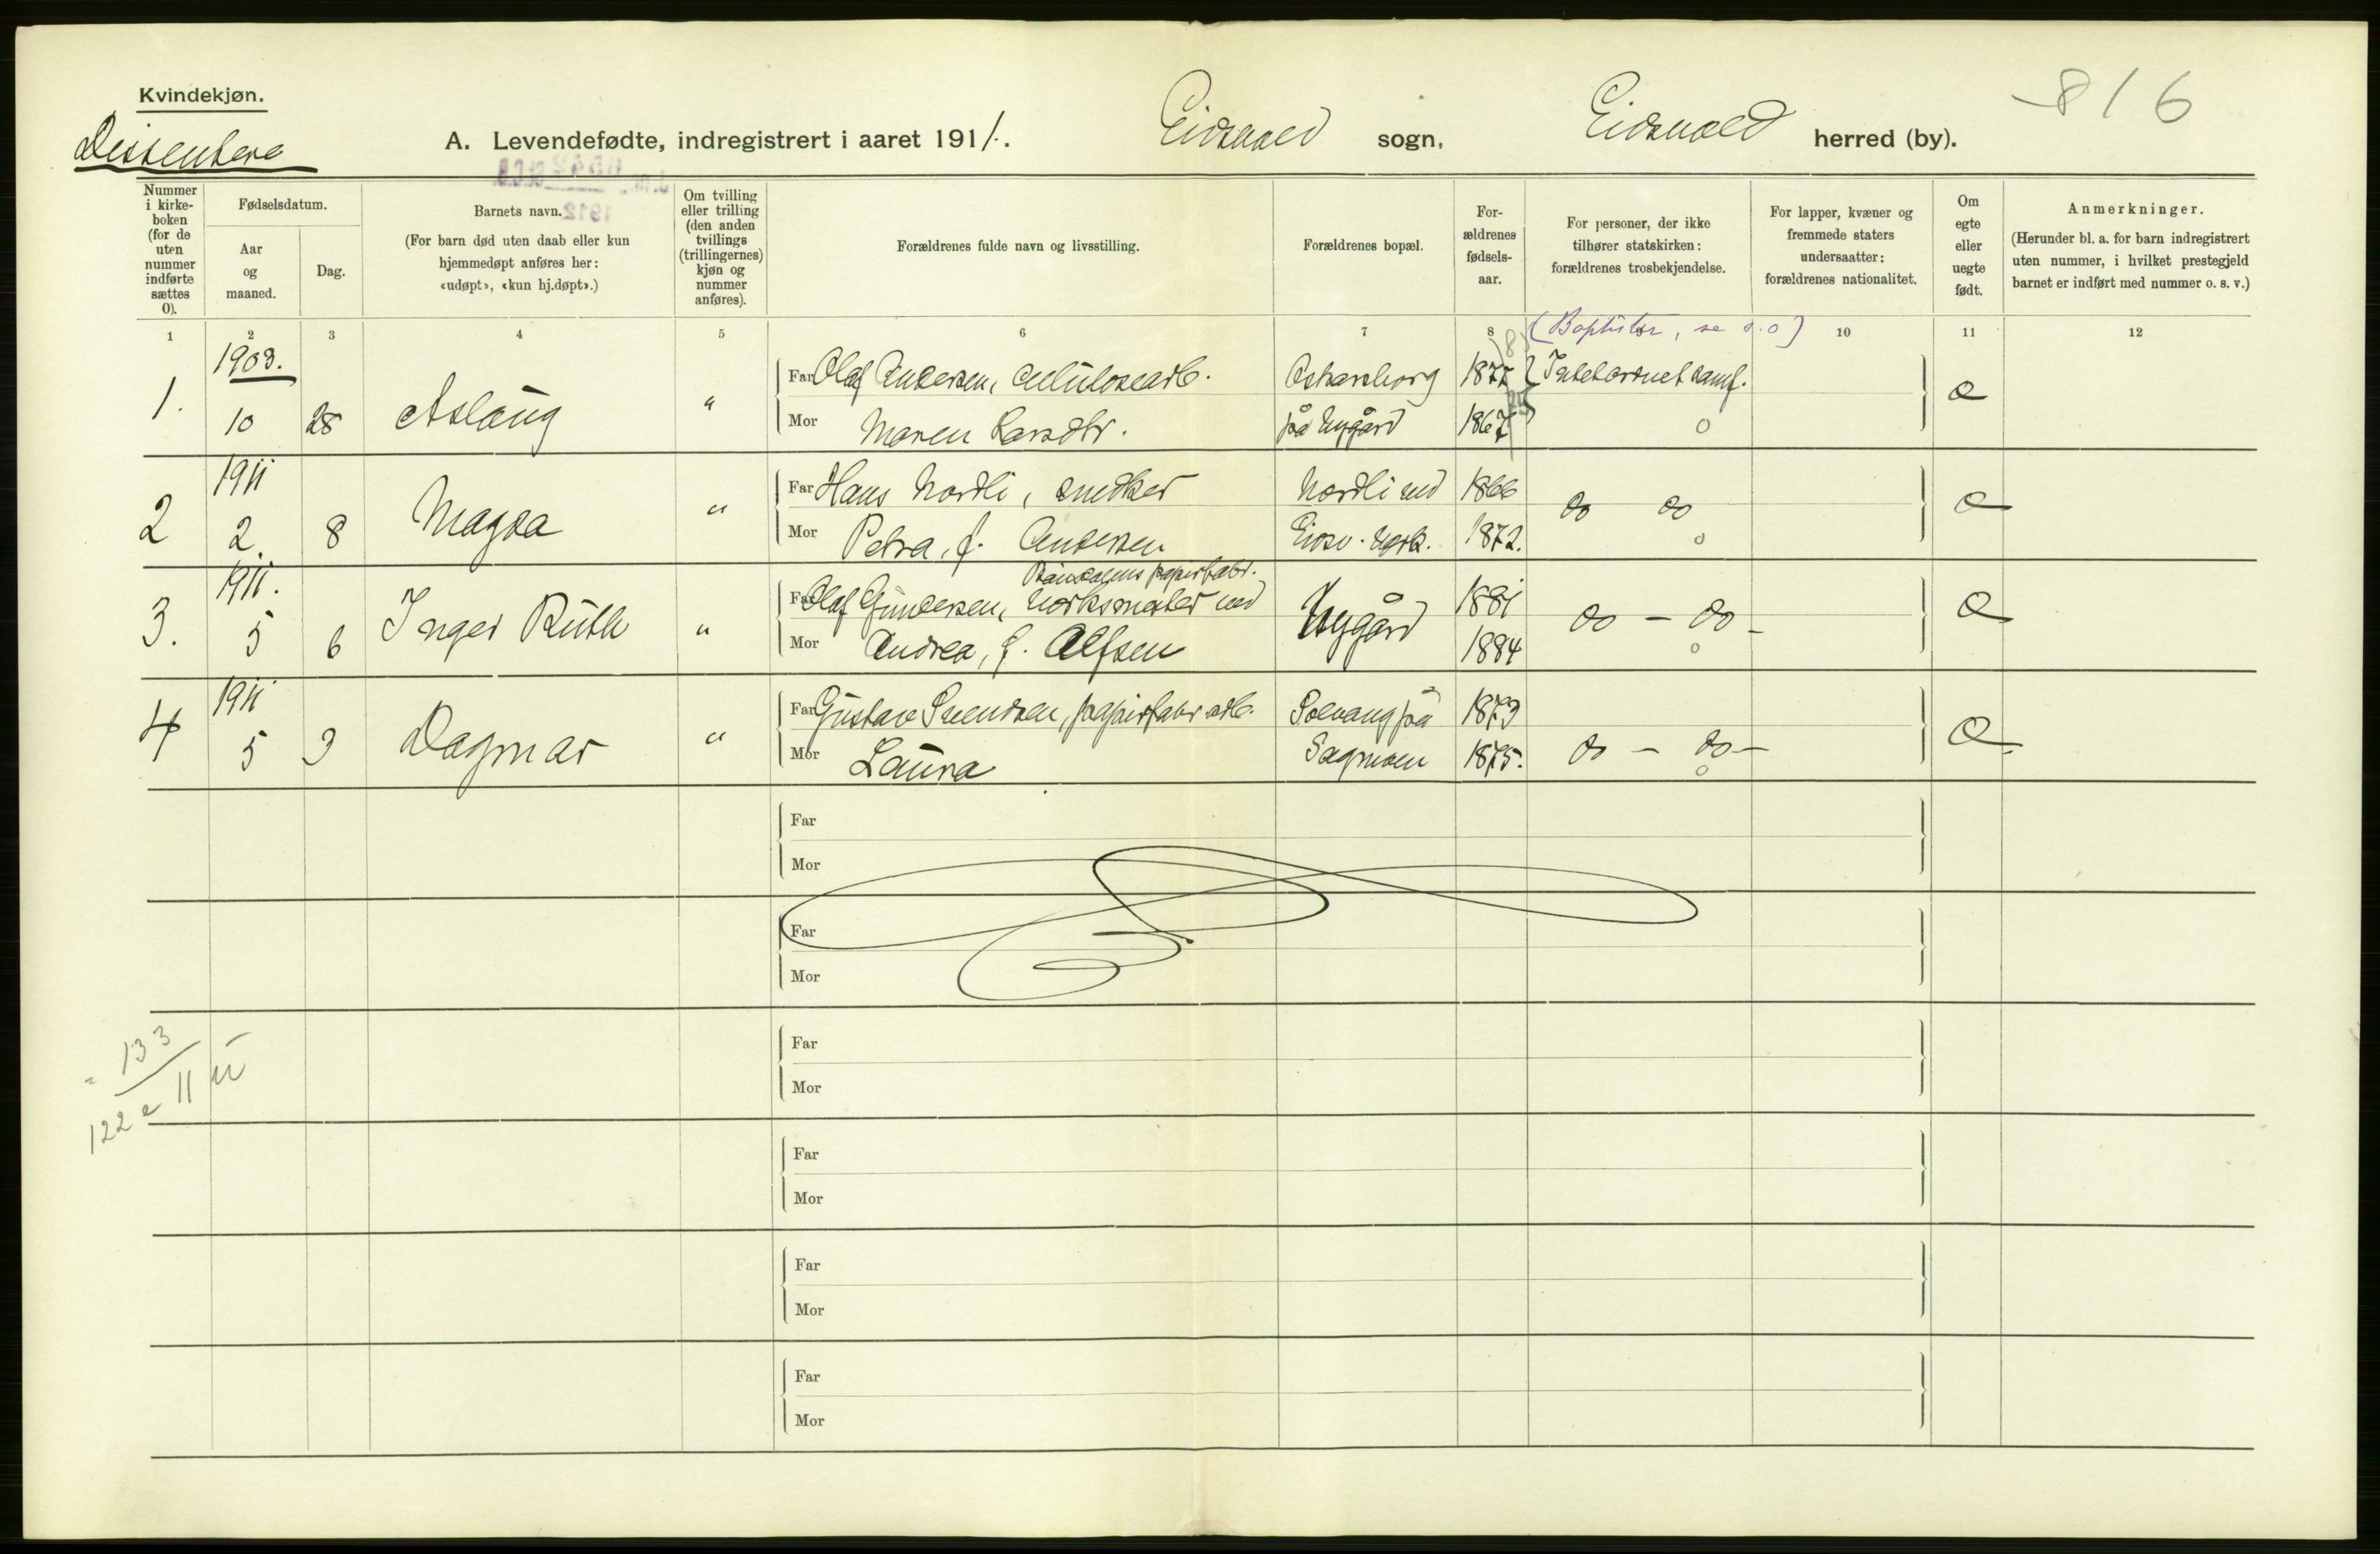 Kvindekjøn.
Dissentere
A. Levendefødte, indregistrert i aaret 1911.
Eidsvold sogn, Eidsvold herred (by).
816
Nummer i kirkeboken (for de uten nummer indførte sættes 0).
Fødselsdatum.
Aar og maaned.
Dag.
Barnets navn.
(For barn død uten daab eller kun hjemmedøpt anføres her: «udøpt», «kun hj.døpt».)
Om tvilling eller trilling (den anden tvillings (trillingernes) kjøn og nummer anføres).
Forældrenes fulde navn og livsstilling.
Forældrenes bopæl.
Forældrenes fødselsaar.
For personer, der ikke tilhører statskirken: forældrenes trosbekjendelse.
For lapper, kvæner og fremmede staters undersaatter: forældrenes nationalitet.
Om egte eller uegte født.
Anmerkninger.
(Herunder bl. a. for barn indregistrert uten nummer, i hvilket prestegjeld barnet er indført med nummer o. s. v.)
1 2 3 4 5 6 7 8 9 10 11 12
(Baptister, se s. o)
1. 1903. 10 28 Aslaug "
Far Olaf Andersen, cellulosearb. Oskarsborg 1877
Mor Maren Larsdtr. på Nygård 1867 o
e
2 1911 2. 8 Magda "
Far Hans Nordli, snedker Nordli ved 1866 do do
Mor Petra, f. Andersen Eidsv. Verk. 1872. o
e
3. 1911. 5 6 Inger Ruth "
papirfabr.
Far Olaf Gundersen, Verksmester ved Nygård 1881 do - do -
Mor Andrea, f. Alfsen 1884 o
e
4 1911 5 9 Dagmar "
Far Gustav Svendsen, papirfabr arb. Solvang på 1879
Mor Laura Sagmoen 1875. do - do - o
e
Far
Mor
Far
Mor
Far
Mor
Far
Mor
Far
Mor
Far
Mor
133
122 e 11 u